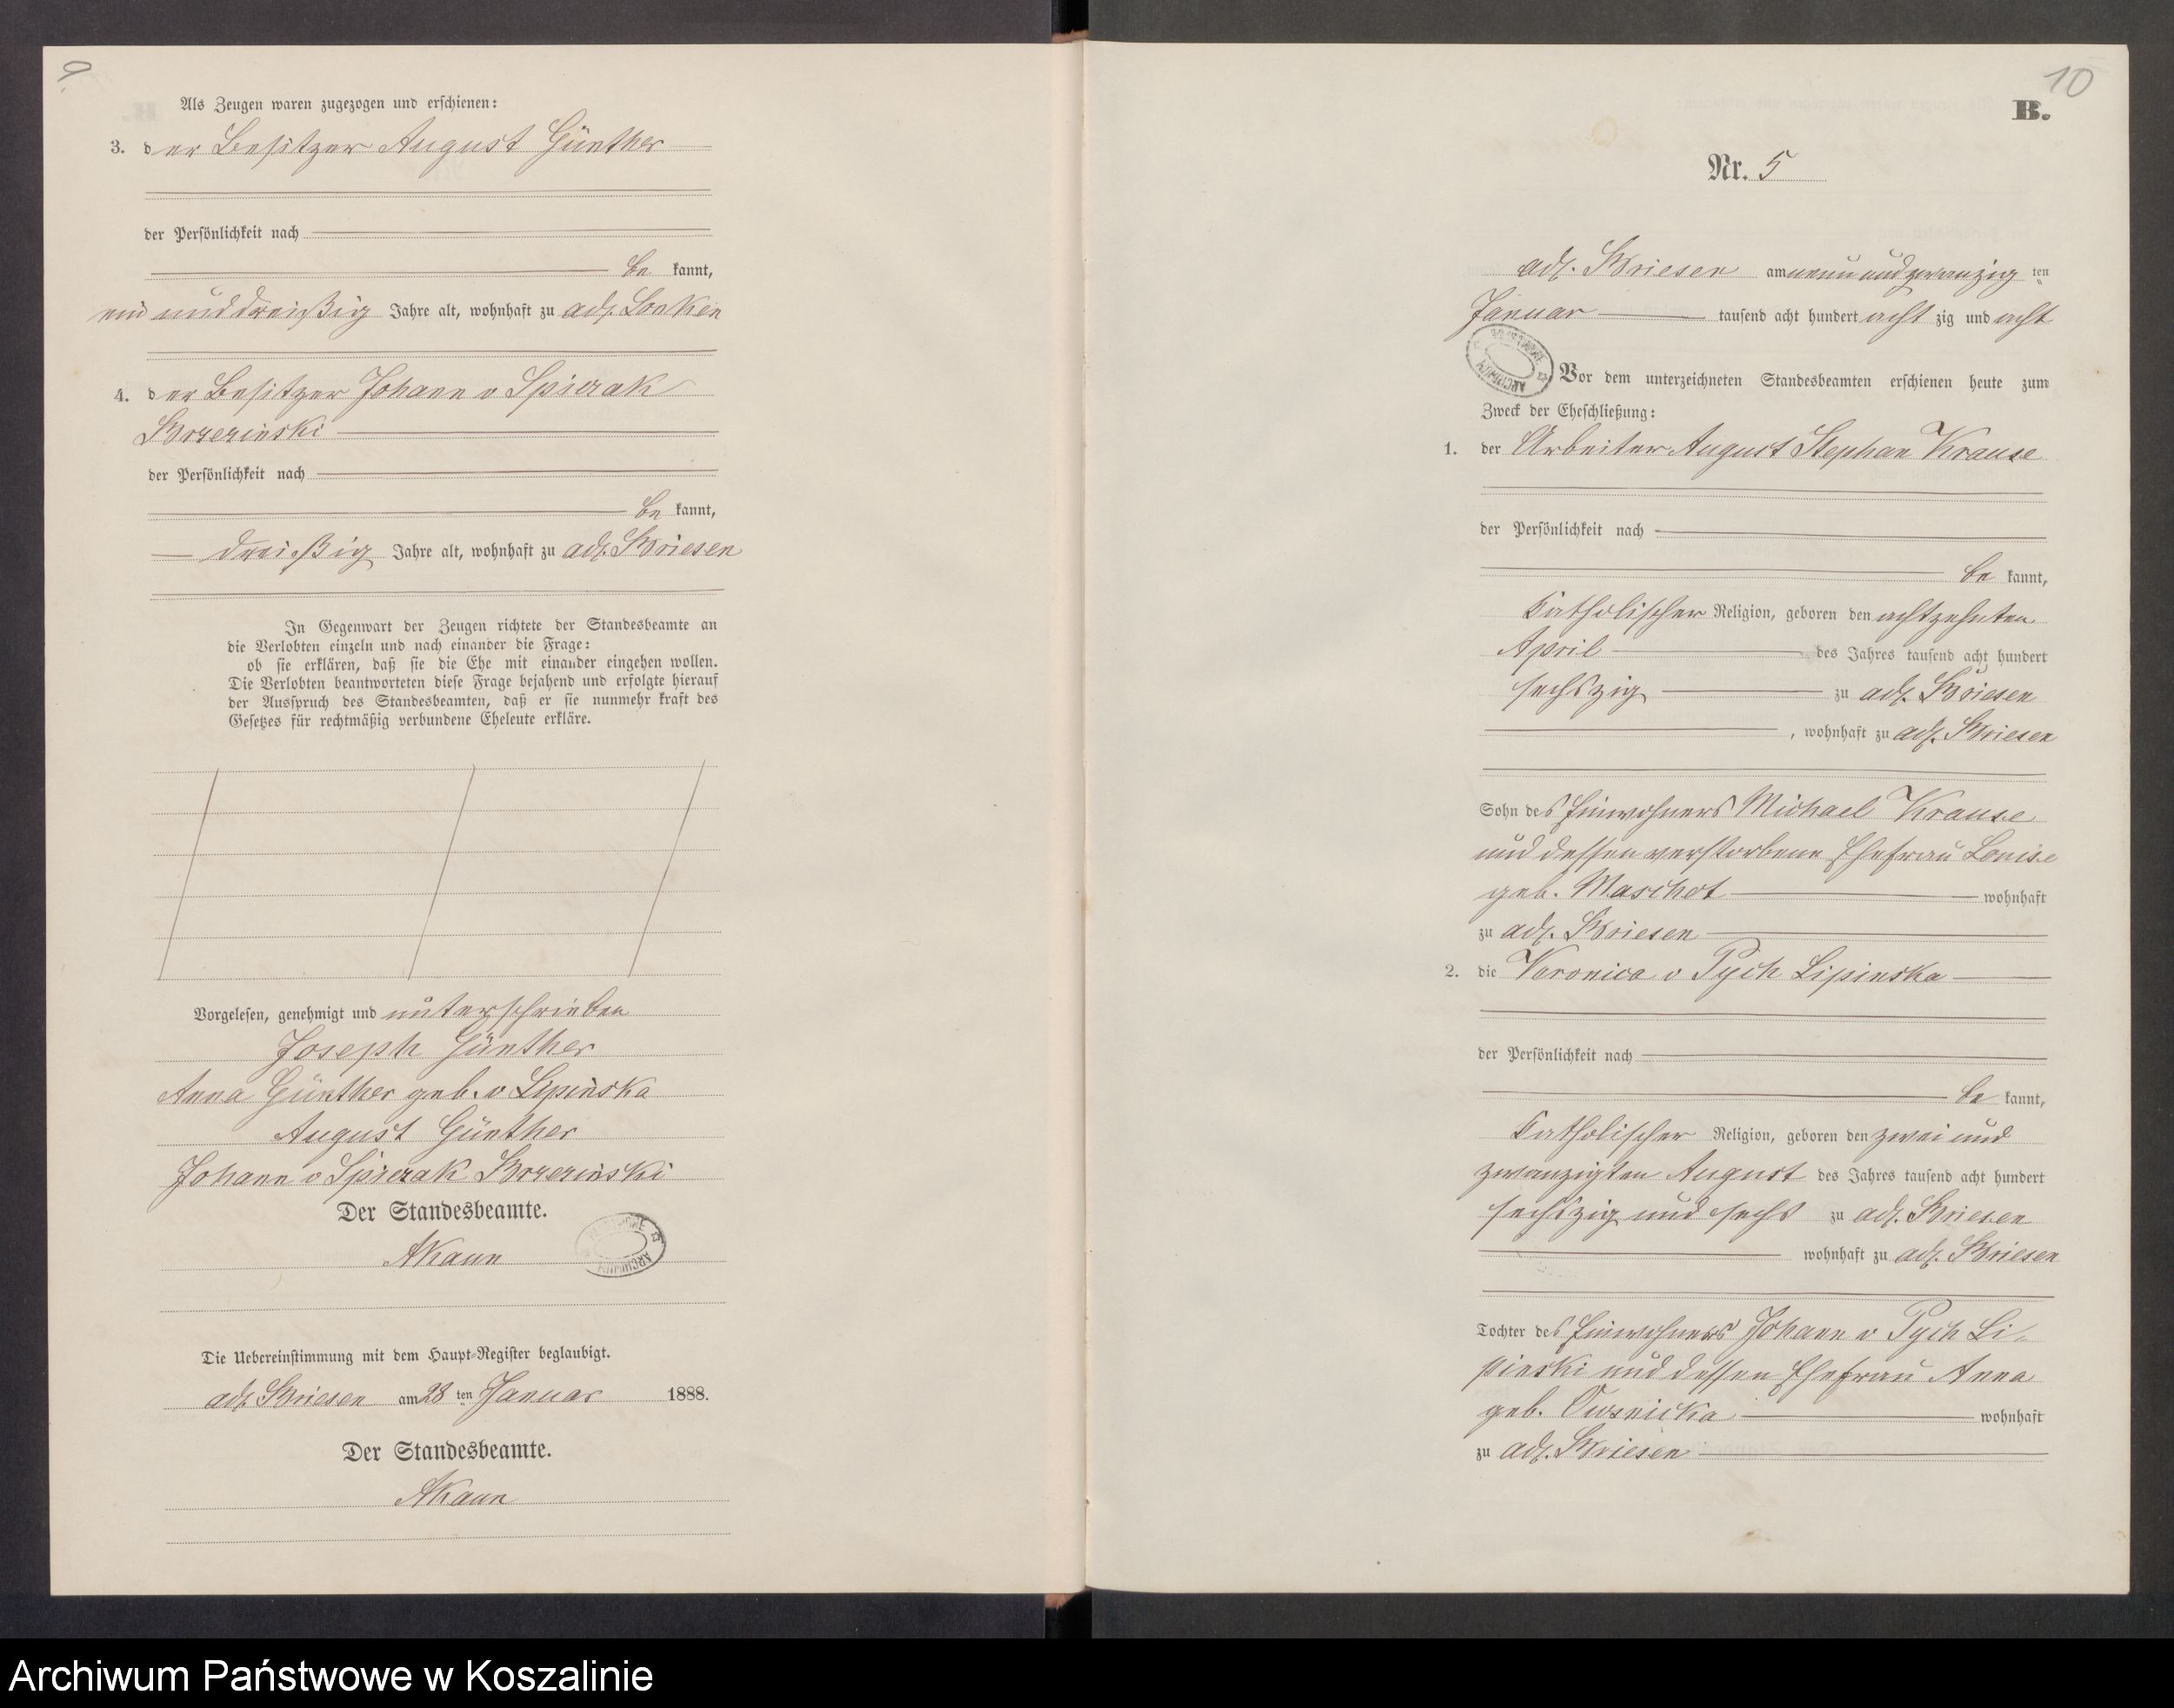 9
Als Zeugen waren zugezogen und erschienen:
3. der Besitzer August Günther
der Persönlichkeit nach
be kannt,
ein und dreißig Jahre alt, wohnhaft zu adl. Lonken
4. der Besitzer Johann v Spiczak
Brzezinski
der Persönlichkeit nach
be kannt,
dreißig Jahre alt, wohnhaft zu adl. Briesen
In Gegenwart der Zeugen richtete der Standesbeamte an
die Verlobten einzeln und nach einander die Frage:
ob sie erklären, daß sie die Ehe mit einander eingehen wollen.
Die Verlobten beantworteten diese Frage bejahend und erfolgte hierauf
der Ausspruch des Standesbeamten, daß er sie nunmehr kraft des
Gesetzes für rechtmäßig verbundene Eheleute erkläre.
Vorgelesen, genehmigt und unterschrieben
Joseph Günther
Anna Günther geb. v Lipinska
August Günther
Johann v Spiczak Brzezinski
Der Standesbeamte.
AKaun
ARCHIWUM
Die Uebereinstimmung mit dem Haupt-Register beglaubigt.
adl. Briesen am 28 ten Januar 1888.
Der Standesbeamte.
AKaun
10
B.
Nr. 5
adl. Briesen am neun und zwanzig ten
Januar tausend acht hundert acht zig und acht
ARCHIWUM
Vor dem unterzeichneten Standesbeamten erschienen heute zum
Zweck der Eheschließung:
1. der Arbeiter August Stephan Krause
der Persönlichkeit nach
be kannt,
katholischer Religion, geboren den achtzehnten
April des Jahres tausend acht hundert
sechszig zu adl. Briesen
, wohnhaft zu adl. Briesen
Sohn des Einwohners Michael Krause
und dessen verstorbene Ehefrau Louise
geb. Maschot wohnhaft
zu adl. Briesen
2. die Veronica v Pych Lipinska
der Persönlichkeit nach
be kannt,
katholischer Religion, geboren den zwei und
zwanzigten August des Jahres tausend acht hundert
sechszig und sechs zu adl. Briesen
wohnhaft zu adl. Briesen
Tochter des Einwohners Johann v Pych Li-
pinski und dessen Ehefrau Anna
geb. Owsnicka wohnhaft
zu adl. Briesen
Archiwum Państwowe w Koszalinie